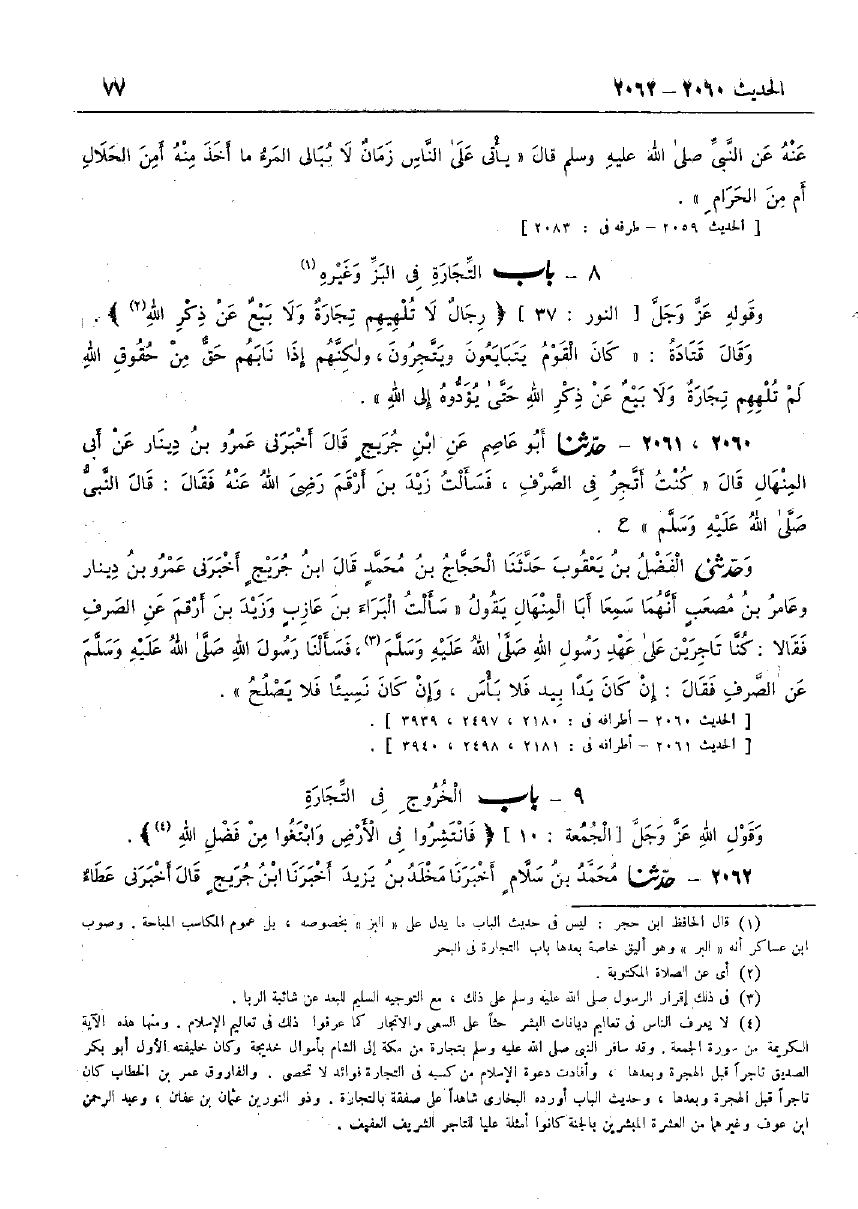 الحديث ٢٠٦٠ – ٢٠٦٢ ٧٧
عَنْهُ عَنِ النَّبِيِّ صلىٰ اللهُ عليهِ وسلم قالَ « يأْتى عَلَىٰ النَّاسِ زَمَانٌ لَا يُبَالى المَرءُ ما أَخَذَ مِنْهُ أَمِنَ الحَلَالِ
أَم مِنَ الحَرَامِ » .
[ الحديث ٢٠٥٩ – طرفه فى : ٢٠٨٣ ]
٨ – باب التِّجَارَةِ فِى البَزِّ وَغَيْرِهِ (١)
وقَولهِ عَزَّ وَجَلَّ [ النور : ٣٧ ] ﴿ رِجَالٌ لَا تُلْهِيهِم تِجَارَةٌ وَلَا بَيْعٌ عَنْ ذِكْرِ اللهِ(٢) ﴾ .
وَقَالَ قَتَادَةُ : « كَانَ الْقَوْمُ يَتَبَايَعُونَ ويَتَّجِرُونَ ، ولٰكِنَّهُم إِذَا نَابَهُم حَقٌّ مِنْ حُقُوقِ اللهِ
لَمْ تُلْهِهِم تِجَارَةٌ وَلَا بَيْعٌ عَنْ ذِكْرِ اللهِ حَتَّىٰ يُؤَدُّوهُ إِلى اللهِ » .
٢٠٦٠ ، ٢٠٦١ – حدّثنا أَبُو عَاصِمٍ عَنِ ابْنِ جُرَيجٍ قَالَ أَخْبَرَنى عَمْرُو بنُ دِينَارٍ عَنْ أَبى
المِنْهَالِ قَالَ « كُنْتُ أَتَّجِرُ فِى الصَّرْفِ ، فَسَأَلْتُ زَيْدَ بنَ أَرْقَمَ رَضِىَ اللهُ عَنْهُ فَقَالَ : قَالَ النَّبِىُّ
صَلَّىٰ اللهُ عَلَيْهِ وَسَلَّم » ح .
وَحَدّثَنِى الْفَضْلُ بنُ يَعْقُوبَ حَدَّثَنَا الْحَجَّاجُ بنُ مُحَمَّدٍ قَالَ ابنُ جُرَيْجٍ أَخْبَرَنى عَمْرُو بنُ دِينارٍ
وعَامرُ بنُ مُصعَبٍ أَنَّهُمَا سَمِعَا أَبَا المِنْهالِ يَقُولُ « سَأَلْتُ الْبَرَاءَ بنَ عَازِبٍ وَزَيْدَ بنَ أَرْقمَ عَنِ الصَرفِ
فَقَالا : كُنَّا تَاجِرَيْنِ عَلىٰ عَهْدِ رَسُولِ اللهِ صَلَّىٰ اللهُ عَلَيْهِ وَسَلَّمَ (٣) ، فَسَأَلْنَا رَسُولَ اللهِ صَلَّىٰ اللهُ عَلَيْهِ وَسَلَّمَ
عَنِ الصَّرفِ فَقَالَ : إِنْ كَانَ يَدًا بِيدٍ فَلا بَأْسَ ، وَإِنْ كَانَ نَسِيئًا فَلا يَصْلُحُ » .
[ الحديث ٢٠٦٠ – أطرافه فى : ٢١٨٠ ، ٢٤٩٧ ، ٣٩٣٩ ] .
[ الحديث ٢٠٦١ – أطرافه فى : ٢١٨١ ، ٢٤٩٨ ، ٣٩٤٠ ] .
٩ – باب الْخُرُوجِ فِى التِّجَارَةِ
وَقَوْلِ اللهِ عَزَّ وَجَلَّ [الْجُمُعة : ١٠ ] ﴿ فَانْتَشِرُوا فِى الْأَرْضِ وَابْتَغُوا مِنْ فَضْلِ اللهِ (٤) ﴾ .
٢٠٦٢ – حدّثنا مُحَمَّدُ بنُ سَلَّامٍ أَخْبَرَنَا مَخْلَدُ بنُ يَزِيدَ أَخْبَرَنَا ابْنُ جُرَيجٍ قَالَ أَخْبَرَنى عَطَاءٌ
(١) قال الحافظ ابن حجر : ليس فى حديث الباب ما يدل على « البز » بخصوصه ، بل عموم المكاسب المباحة . وصوب
ابن عساكر أنه « البر » وهو أليق خاصة بعدها باب التجارة فى البحر
(٢) أى عن الصلاة المكتوبة .
(٣) فى ذلك إقرار الرسول صلى الله عليه وسلم على ذلك ، مع التوجيه السليم للبعد عن شائبة الربا .
(٤) لا يعرف الناس فى تعاليم ديانات البشر حثاً على السعى والاتجار كما عرفوا ذلك فى تعاليم الإسلام . ومنها هذه الآية
الكريمة من سورة الجمعة . وقد سافر النبى صلى الله عليه وسلم بتجارة من مكة إلى الشام بأموال خديجة وكان خليفته الأول أبو بكر
الصديق تاجراً قبل الهجرة وبعدها ، وأفادت دعوة الإسلام من كسبه فى التجارة فوائد لا تحصى . والفاروق عمر بن الخطاب كان
تاجراً قبل الهجرة وبعدها ، وحديث الباب أورده البخارى شاهداً على صفقة بالتجارة . وذو النورين عثمان بن عفان ، وعبد الرحمن
ابن عوف وغيرهما من العشرة المبشرين بالجنة كانوا أمثلة عليا للتاجر الشريف العفيف .